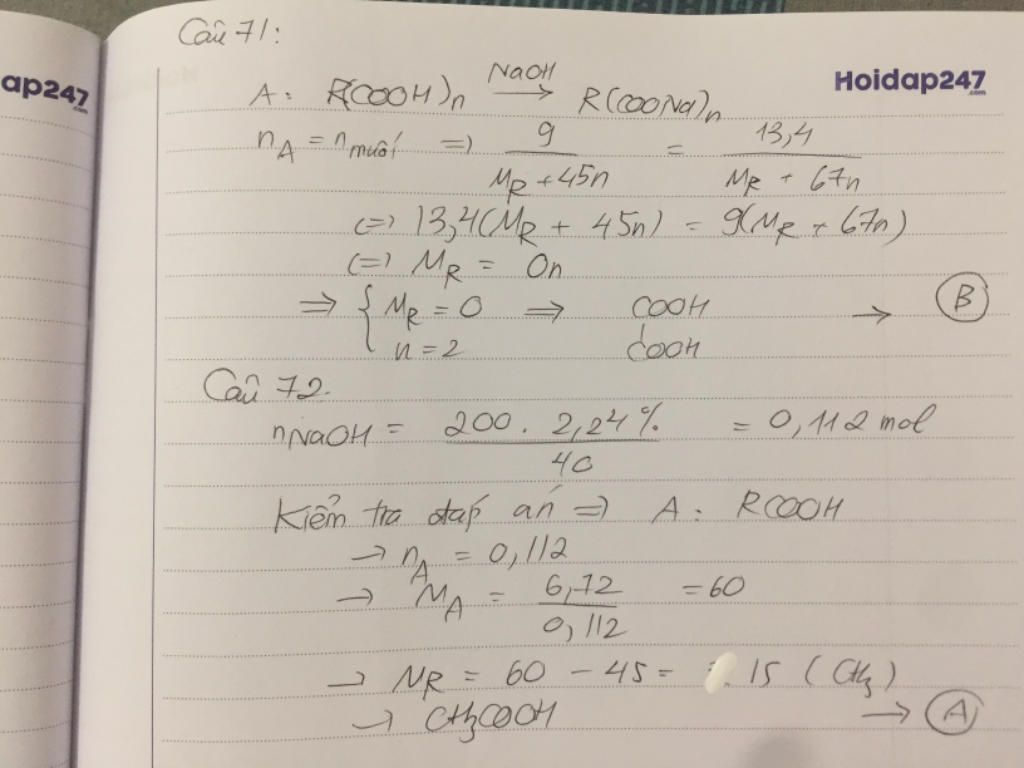 Câu 71:
ap247
.com
Hoidap247
.com
A: R(COOH)n —NaOH→ R(COONa)n
nA = nmuối => 9/(MR + 45n) = 13,4/(MR + 67n)
<=> 13,4(MR + 45n) = 9(MR + 67n)
<=> MR = 0n
=> { MR = 0 => COOH → B
n = 2 COOH
Câu 72.
nNaOH = 200 . 2,24% / 40 = 0,112 mol
Kiểm tra đáp án => A: RCOOH
→ nA = 0,112
→ MA = 6,72/0,112 = 60
→ MR = 60 - 45 = 15 (CH3)
→ CH3COOH → A